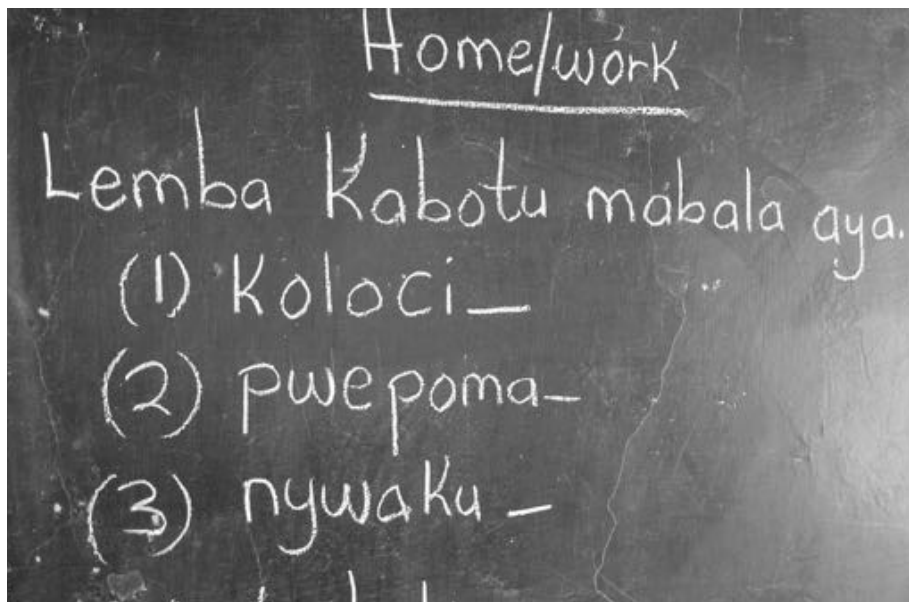 Home/work
Lemba Kabotu mabala aya.
(1) Koloci_
(2) pwepoma_
(3) nywaku_